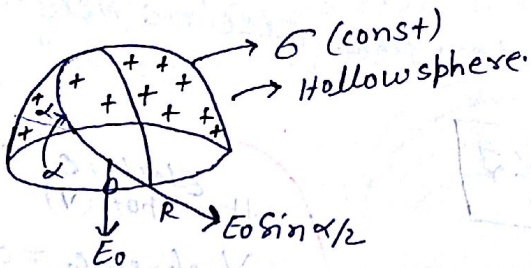 σ (const)
Hollow sphere.
+ + + + + + + + + + +
α
α
O
R
E₀ Sin α/2
E₀